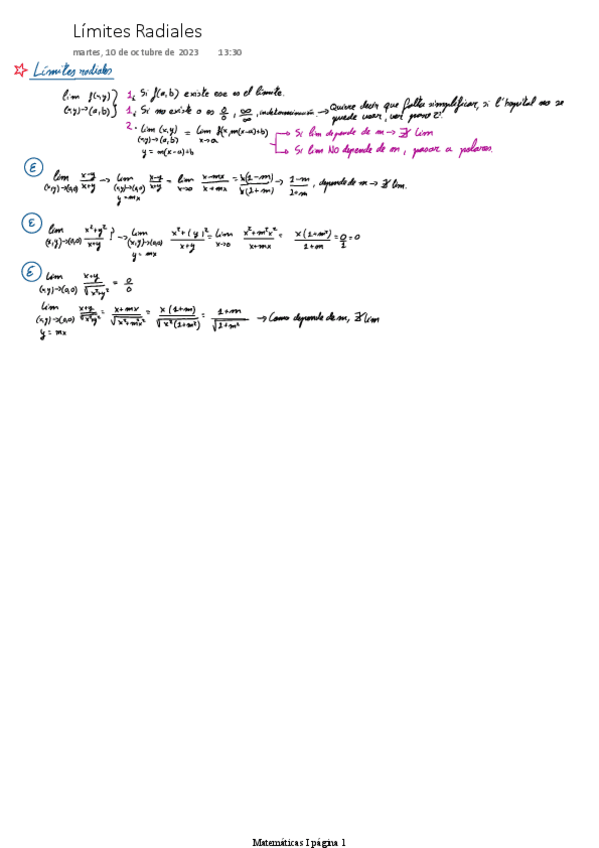 Límites Radiales
martes, 10 de octubre de 2023 13:30
☆ Límites radiales
lim f(x,y) (x,y)→(a,b) } 1. Si f(a,b) existe ese es el límite.
1. Si no existe o es 0/0, ∞/∞, indeterminación → Quiere decir que falta simplificar, si l'hopital no se puede usar, ver paso 2.
2. lim (x,y) (x,y)→(a,b) y = m(x-a)+b = lim x→a f(x, m(x-a)+b)
→ Si lim depende de m → ∄ lim
→ Si lim NO depende de m, pasar a polares.
E lim (x,y)→(0,0) x-y/x+y → lim (x,y)→(0,0) y=mx x-y/x+y = lim x→0 x-mx/x+mx = x(1-m)/x(1+m) → 1-m/1+m, depende de m → ∄ lim.
E lim (x,y)→(0,0) x²+y²/x+y } → lim (x,y)→(0,0) y=mx x²+(y)²/x+y = lim x→0 x²+m²x²/x+mx = x(1+m²)/1+m = 0/1 = 0
E lim (x,y)→(0,0) x+y/√x²+y² = 0/0
lim (x,y)→(0,0) y=mx x+y/√x²+y² = x+mx/√x²+m²x² = x(1+m)/√x²(1+m²) = 1+m/√1+m² → Como depende de m, ∄ lim
Matemáticas I página 1